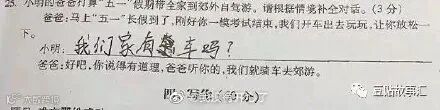 25. 小明的爸爸打算“五一”假期带全家到郊外自驾游。请根据情境补全对话。(3分)
爸爸:马上“五一”长假到了,刚好你一模考试结束,我们开车出去玩玩,让你放松一
下。
小明:我们家有车吗?
爸爸:好吧,你说得有道理,爸爸听你的,我们就骑车去郊游。
四、写作(
分)
豆贴故事汇